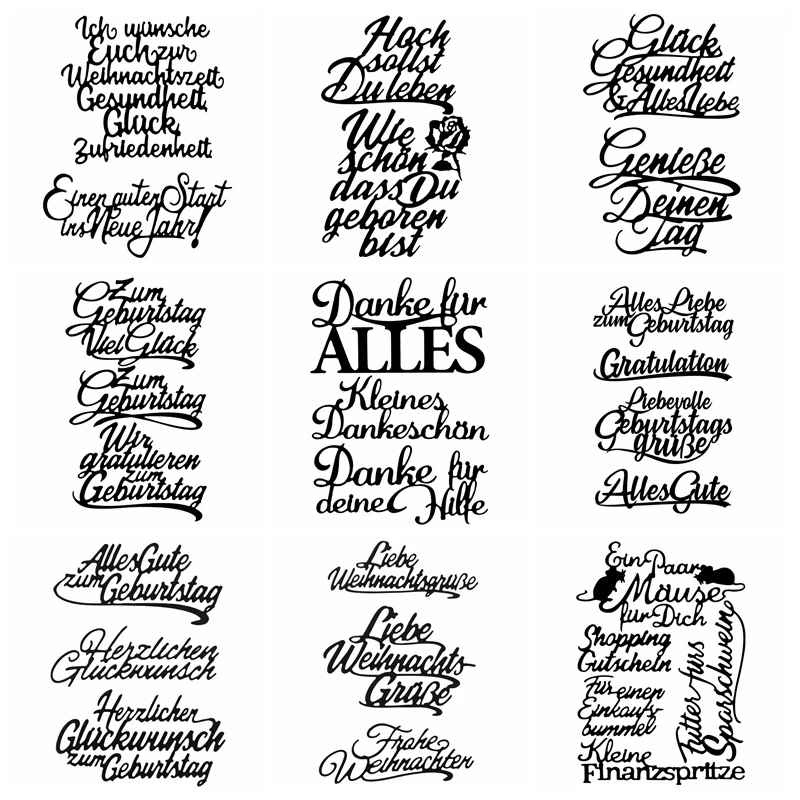 Ich wünsche
Euch zur
Weihnachtszeit
Gesundheit,
Glück,
Zufriedenheit
Einen guten Start
ins Neue Jahr!
Hoch
sollst
Du leben
Wie
schön
dass Du
geboren
bist
Glück
Gesundheit
& Alles Liebe
Genieße
Deinen
Tag
Zum
Geburtstag
Viel Glück
Zum
Geburtstag
Wir
gratulieren
zum
Geburtstag
Danke für
ALLES
Kleines
Dankeschön
Danke für
deine Hilfe
Alles Liebe
zum Geburtstag
Gratulation
Liebevolle
Geburtstags
grüße
Alles Gute
Alles Gute
zum Geburtstag
Herzlichen
Glückwunsch
Herzlichen
Glückwunsch
zum Geburtstag
Liebe
Weihnachtsgrüße
Liebe
Weihnachts-
Grüße
Frohe
Weihnachten
Ein Paar
Mäuse
für Dich
Shopping
Gutschein
Für einen
Einkaufs-
bummel
Kleine
Finanzspritze
Futter fürs
Sparschwein